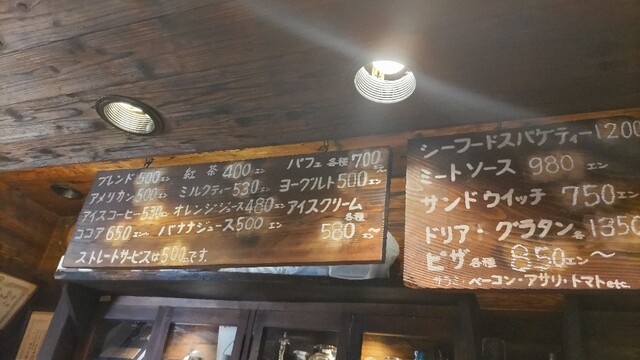 ブレンド500エン 紅茶400エン パフェ各種700エン
アメリカン500エン ミルクティー530エン ヨーグルト500エン
アイスコーヒー530エン オレンジジュース480エン アイスクリーム
ココア650エン〜 バナナジュース500エン 各種580エン〜
ストレートサービスは500です。
シーフードスパゲティー1200
ミートソース 980 エン
サンドウイッチ 750エン
ドリア・グラタン各1350
ピザ各種 850エン〜
サラミ・ベーコン・アサリ・トマトetc.